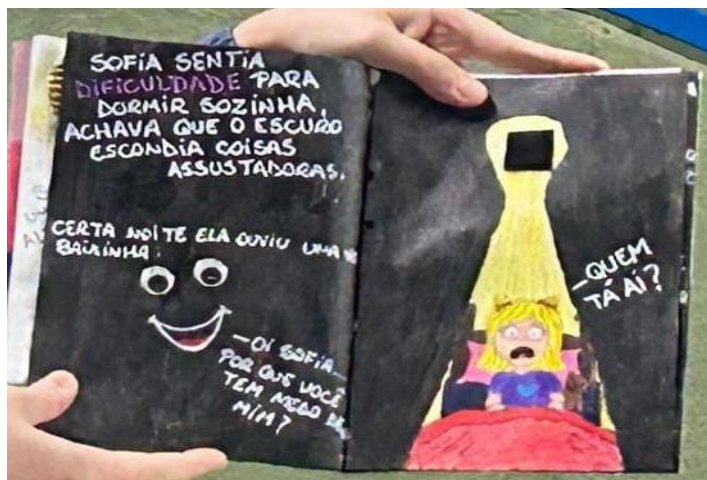 SOFIA SENTIA
DIFICULDADE PARA
DORMIR SOZINHA,
ACHAVA QUE O ESCURO
ESCONDIA COISAS
ASSUSTADORAS.
CERTA NOITE ELA OUVIU UMA
BAIXINHA:
—OI SOFIA...
POR QUE VOCÊ
TEM MEDO DE
MIM?
—QUEM
TÁ AÍ?